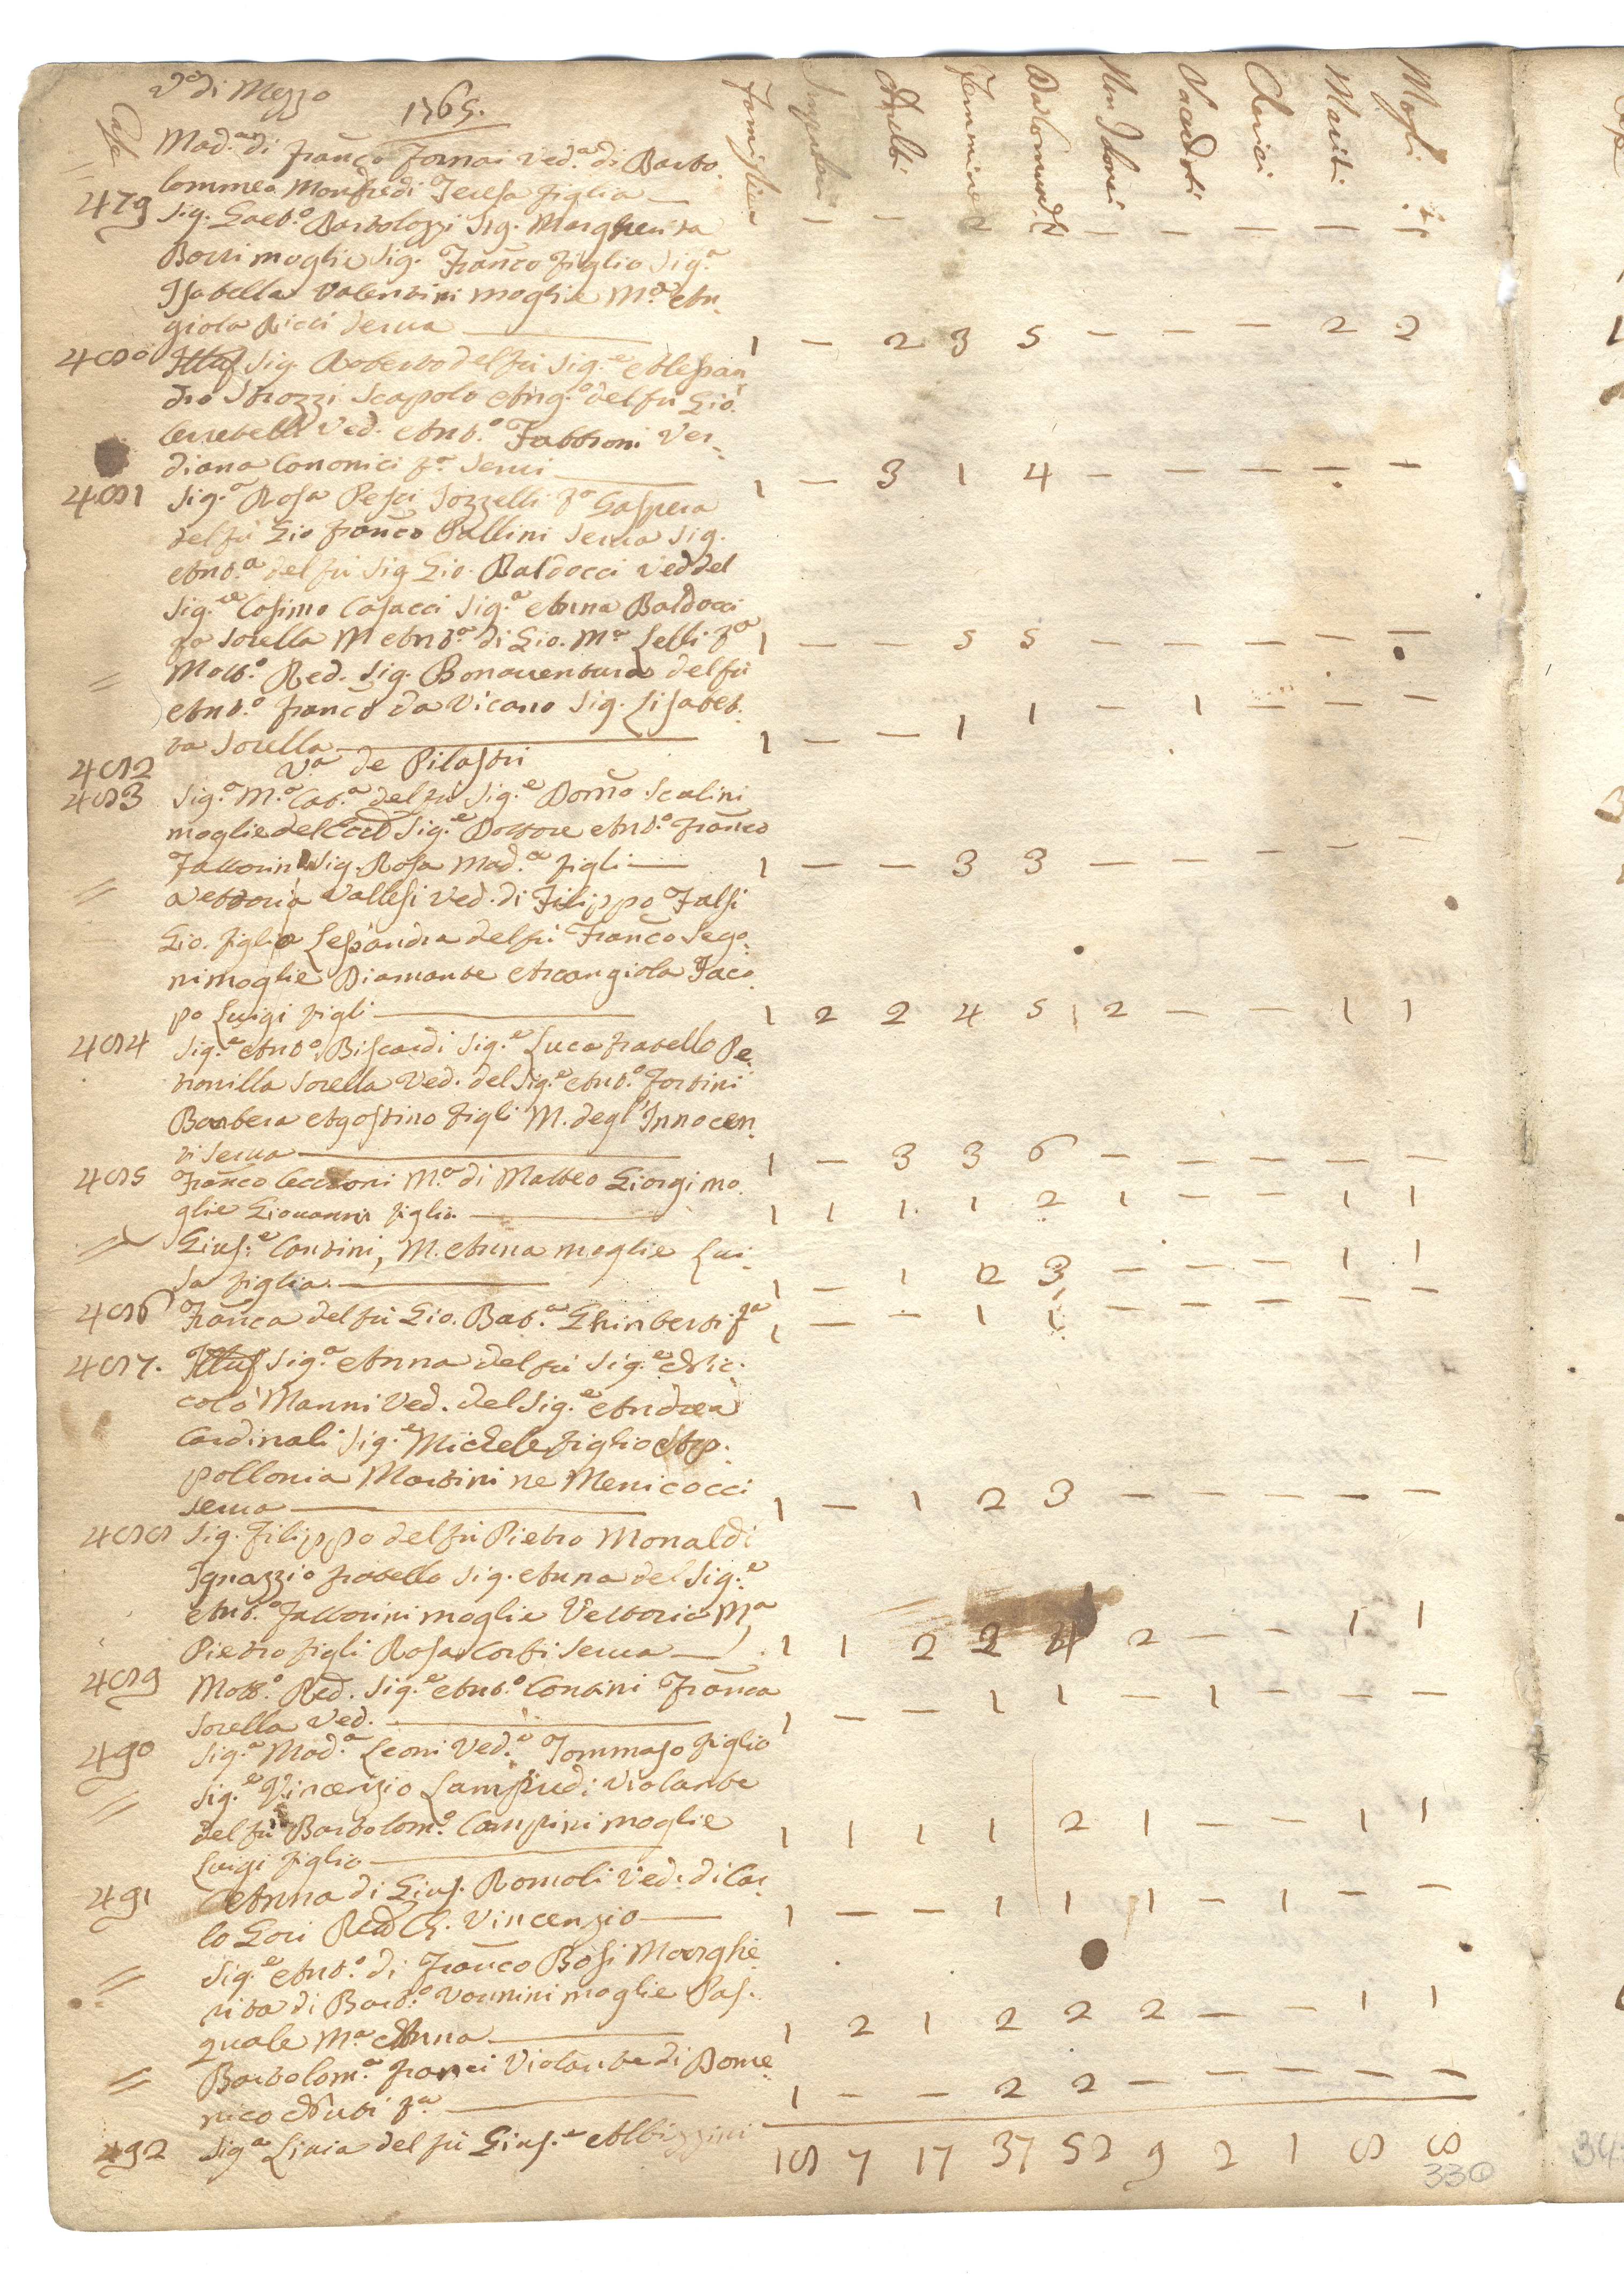 Va di Mezzo
1765.
Case
Famiglie
Impuberi
Adulti
Femmine
Da Comunione
Non Idonei
Sacerdoti
Cherici
Mariti
Mogli
Mad.a di Franco Fornai Ved.a di Barto.
lommeo Monfredi Teresa figlia —
479 Sig. Gaet.o Bartolozzi Sig. Margherita — — 2 2 — — — — —
Borri moglie Sig. Franco figlio Sig.a
Isabella Valentini moglie M.a An
giola Ricci Serua — 1 — 2 3 5 — — — 2 2
480 Illus Sig. Roberto del fù Sig.e Alessan
dro Strozzi Scapolo Ang.o del fù Gio.
Cerretelli Ved. Ant.o Fabbroni Ver
diana Cononici f.a Serui — 1 — 3 1 4 — — — — —
481 Sig.a Rosa Pesci Sozzelli f.a Gaspera
del fù Gio Franco Pallini Serua Sig.
Ant.a del fù Sig Gio. Baldocci Ved del
Sig.re Cosimo Casacci Sig.a Anna Baldocci
sorella M Ant.a di Gio. M.a Lelli f.a 1 — — 5 5 — — — — —
= Molt.o Red. Sig. Bonauentura del fù
Ant.o Franco da Vicano Sig. Lisabet.
ta Sorella — 1 — — 1 1 — 1 — — —
482 V.a de Pilastri
483 Sig.a M.a Cat.a del fù Sig.e Dom.o Scalini
moglie dell'Ecc Sig.e Dottore Ant.o Franco
Fattorini Sig. Rosa Mad.a figli — 1 — — 3 3 — — — — —
= Vettoria Vallesi Ved. di Filippo Falsi
Gio. figlio Lesandra del fù Franco Sego
ni moglie Diamante Arcangiola Jaco
po Luigi figli — 1 2 2 4 5 2 — — 1 1
484 Sig.e Ant.o Biscardi Sig.e Luca fratello Pe
tronilla Sorella Ved. del Sig.e Ant.o Fortini
Barbera Agostino figli M. degl'Innocen
ti Serua — 1 — 3 3 6 — — — — —
485 Franco Cecconi M.a di Matteo Giorgi mo
glie Giouanni figlio — 1 1 1 1 2 1 — — 1 1
= Gius.e Contini, M. Anna moglie Lui
sa figlia. — 1 — 1 2 3 — — — 1 1
486 Franca del fù Gio. Bat.a Ghinberti f.a 1 — — 1 1 — — — — —
487. Illus Sig.a Anna del fù Sig.e Nic
colò Manni Ved. del Sig.e Andrea
Cardinali Sig.e Michele figlio Ap
pollonia Martini ne Menicocci
serua — 1 — 1 2 3 — — — — —
488 Sig. Filippo del fù Pietro Monaldi
Ignazzio fratello Sig. Anna del Sig.e
Ant.o Fattorini moglie Vettoria M.a
Pietro figli Rosa Corsi Serua — 1 1 2 2 4 2 — — 1 1
489 Molt.o Red. Sig.e Ant.o Contini Franca
Sorella Ved. — 1 — — 1 1 — 1 — — —
490 Sig.a Mad.a Leoni Ved.a Tommaso figlio
= Sig.e Vincenzio Lampredi Violante
del fù Bartolom.o Campini moglie
Luigi figlio — 1 1 1 1 2 1 — — 1 1
491 Anna di Gius. Romoli Ved. di Car
lo Gori Red Ch. Vincenzio — 1 — — 1 1 1 — 1 — —
= Sig.e Ant.o di Franco Bosi Marghe
rita di Bart.o Vannini moglie Pas.
quale M.a Anna — 1 2 1 2 2 2 — — 1 1
= Bartolom.a Franci Violante di Dome
nico Nuti f.a — 1 — — 2 2 — — — — —
492 Sig.a Liuia del fù Gius.e Albizzini
18 7 17 37 52 9 2 1 8 8
330